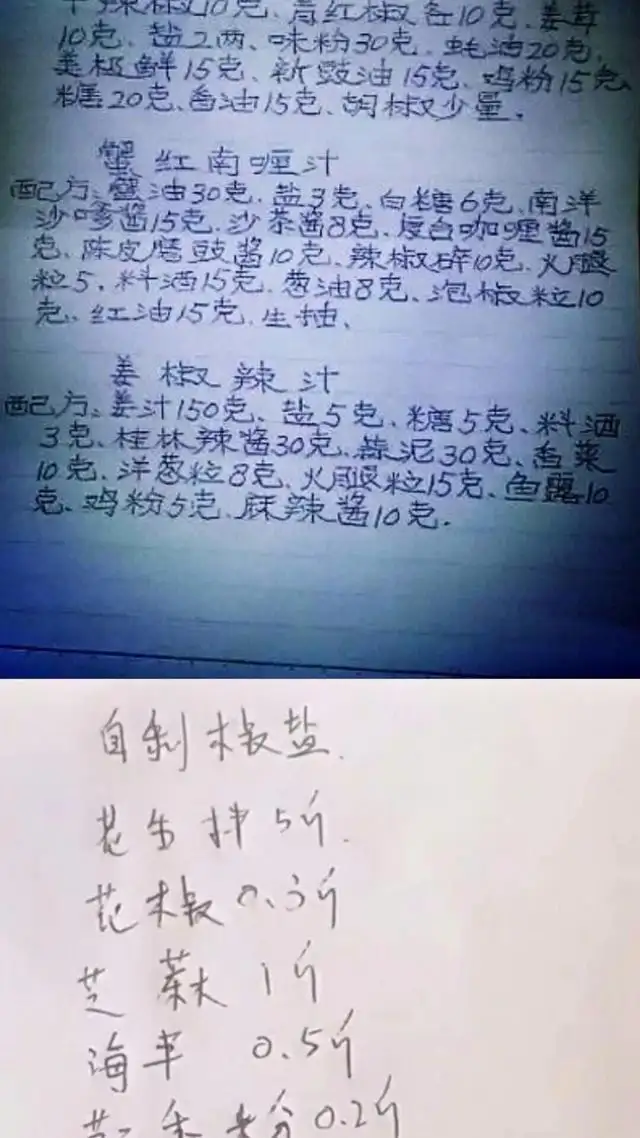 干辣椒10克、青红椒各10克、姜茸
10克、盐2两、味粉30克、蚝油20克、
美极鲜15克、新豉油15克、鸡粉15克、
糖20克、香油15克、胡椒少量。
蟹红南喱汁
配方：蟹油30克、盐3克、白糖6克、南洋
沙嗲酱15克、沙茶酱8克、度台咖喱酱15
克、陈皮磨豉酱10克、辣椒碎10克、火腿
粒5、料酒15克、葱油8克、泡椒粒10
克、红油15克、生抽、
姜椒辣汁
配方：姜汁150克、盐5克、糖5克、料酒
3克、桂林辣酱30克、蒜泥30克、香菜
10克、洋葱粒8克、火腿粒15克、鱼露10
克、鸡粉5克、麻辣酱10克.
自制椒盐.
花生拌5斤.
花椒0.3斤
芝蔴1斤
海辛 0.5斤
0.2斤